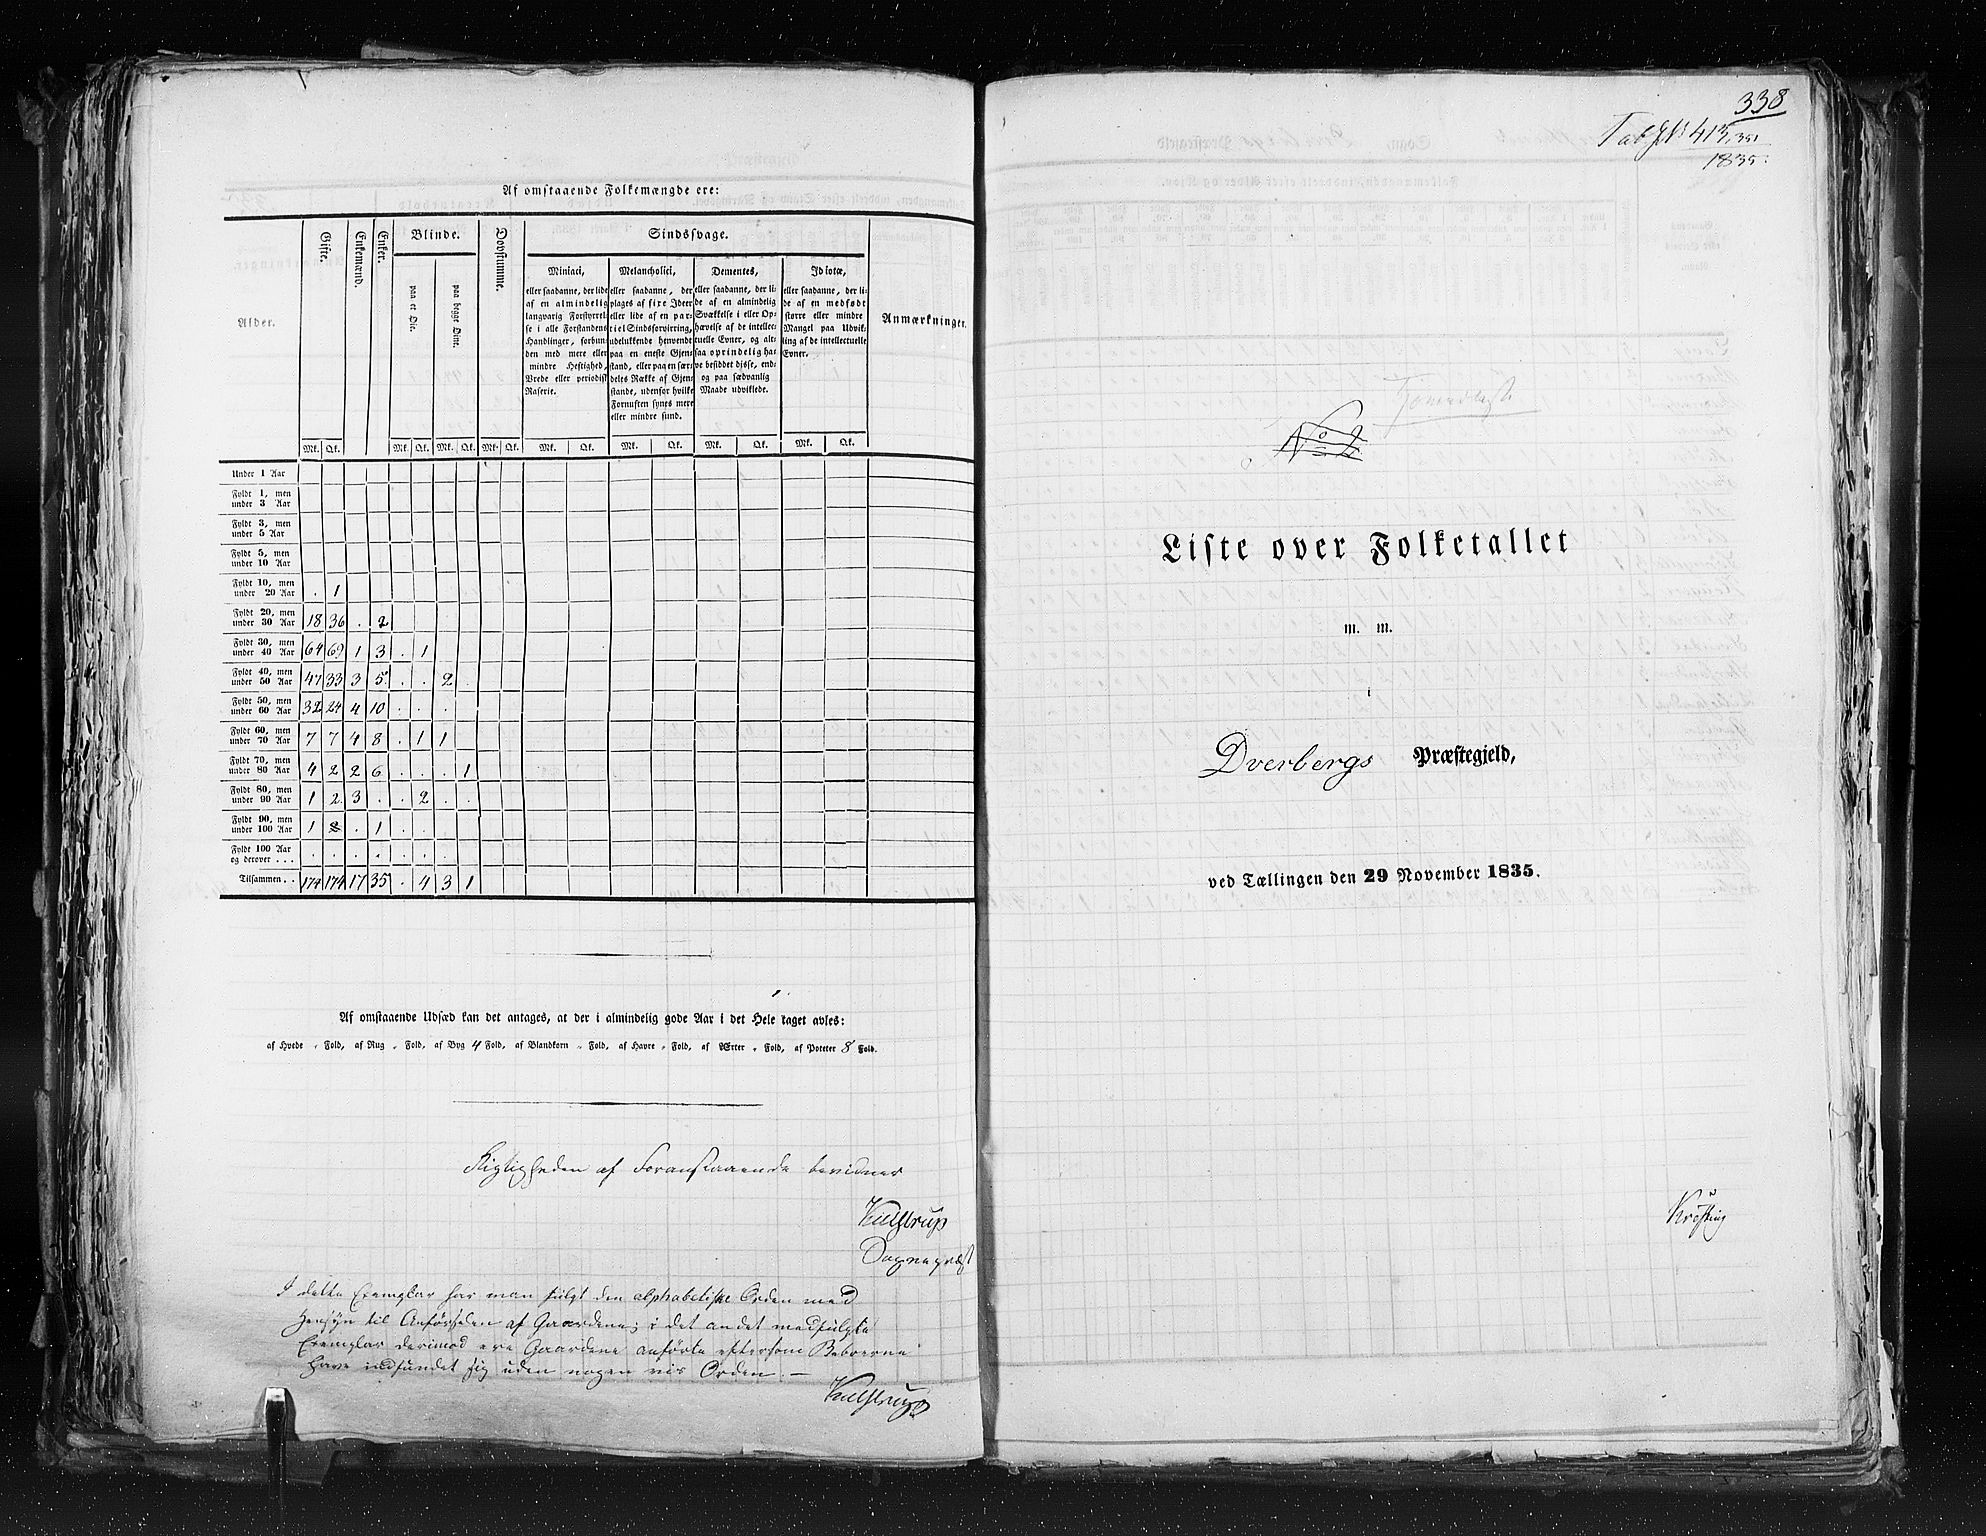 Af omstaaende Folkemængde ere:
Alder.
Gifte.
Enkemænd.
Enker.
Blinde.
paa et Øie.
paa begge Øine.
Døvstumme.
Sindssvage.
Miniaci,
eller saadanne, der lide
af en almindelig
langvarig Forstyrrel-
se i alle Forstandens
Handlinger, forbun-
den med mere eller
mindre Heftighed,
Vrede eller periodisk
Raserie.
Melancholici,
eller saadanne, der
plages af fixe Ideer
eller lide af en par-
tiel Sindsforvirring,
udelukkende henvendt
paa en eneste Gjen-
stand, eller paa en sær-
deles Række af Gjen-
stande, udenfor hvilke
Fornuften synes mere
eller mindre sund.
Dementes,
eller saadanne, der li-
de af en almindelig
Svækkelse i eller Op-
hævelse af de intellec-
tuelle Evner, og alt-
saa oprindelig ha-
ve besiddet disse, end-
og paa sædvanlig
Maade udviklede.
Idiotæ,
eller saadanne, der li-
de af en medfødt
større eller mindre
Mangel paa Udvik-
ling af de intellectuelle
Evner.
Anmærkninger.
Mk. Qk. Mk. Qk. Mk. Qk. Mk. Qk. Mk. Qk. Mk. Qk. Mk. Qk. Mk. Qk.
Under 1 Aar
Fyldt 1, men
under 3 Aar
Fyldt 3, men
under 5 Aar
Fyldt 5, men
under 10 Aar
Fyldt 10, men
under 20 Aar . 1
Fyldt 20, men
under 30 Aar 18 36 . 2
Fyldt 30, men
under 40 Aar 64 69 1 3 . 1
Fyldt 40, men
under 50 Aar 47 33 3 5 . . 2 .
Fyldt 50, men
under 60 Aar 32 24 4 10 . . .
Fyldt 60, men
under 70 Aar 7 7 4 8 . 1 1
Fyldt 70, men
under 80 Aar 4 2 2 6 . . . 1
Fyldt 80, men
under 90 Aar 1 2 3 . . 2 . .
Fyldt 90, men
under 100 Aar 1 2 . 1 . .
Fyldt 100 Aar
og derover . . . . . . . . .
Tilsammen . . 174 174 17 35 . 4 3 1
Af omstaaende Udsæd kan det antages, at der i almindelig gode Aar i det Hele taget avles:
af Hvede " Fold, af Rug " Fold, af Byg 4 Fold, af Blandkorn " Fold, af Havre " Fold, af Ærter " Fold, af Poteter 8 Fold.
Rigtigheden af Foranstaaende bevidner
Kielstrup
Sognepræst
I dette Exemplar har man fulgt den alphabetiske Orden med
Hensyn til Anførselen af Gaardene; i det andet medfulgte
Exemplar derimod ere Gaardene anførte eftersom Beboerne
have indfundet sig uden nogen vis Orden. —
Kielstrup
338
1835.
No 2
Liste over Folketallet
m. m.
i
Dverbergs Præstegjeld,
ved Tællingen den 29 November 1835.